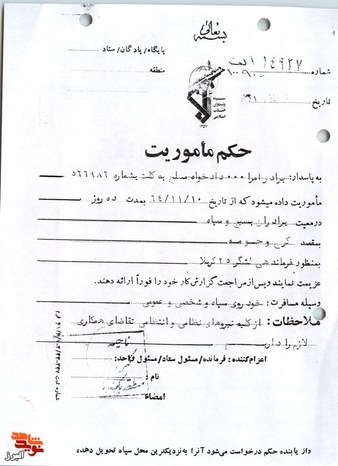 بسمه تعالی
پایگاه/پادگان/ستاد
منطقه
شماره ۱۴۹۲۷
تاریخ
سپاه پاسداران انقلاب اسلامی
حکم ماموریت
به پاسدار: برادر امرا... دادخواه مسلح به کلت بشماره ۵۶۶۹۸۶
ماموریت داده میشود که از تاریخ ۶۴/۱۱/۱۰ بمدت ده روز
درمعیت برادران بسیج و سپاه
بمقصد کرج و حومه
بمنظور فرماندهی لشگر ۲۵ کربلا
عزیمت نمایند و پس از مراجعت گزارش کار خود را فوراً ارائه دهند.
وسیله مسافرت: خودروی سپاه و شخصی و عمومی
ملاحظات: از کلیه نیروهای نظامی و انتظامی تقاضای همکاری
لازم را داریم
اعزام‌کننده: فرمانده/مسئول ستاد/مسئول واحد:
نام:
امضاء
از یابنده حکم درخواست می‌شود آنرا به نزدیکترین محل سپاه تحویل دهد
البرز